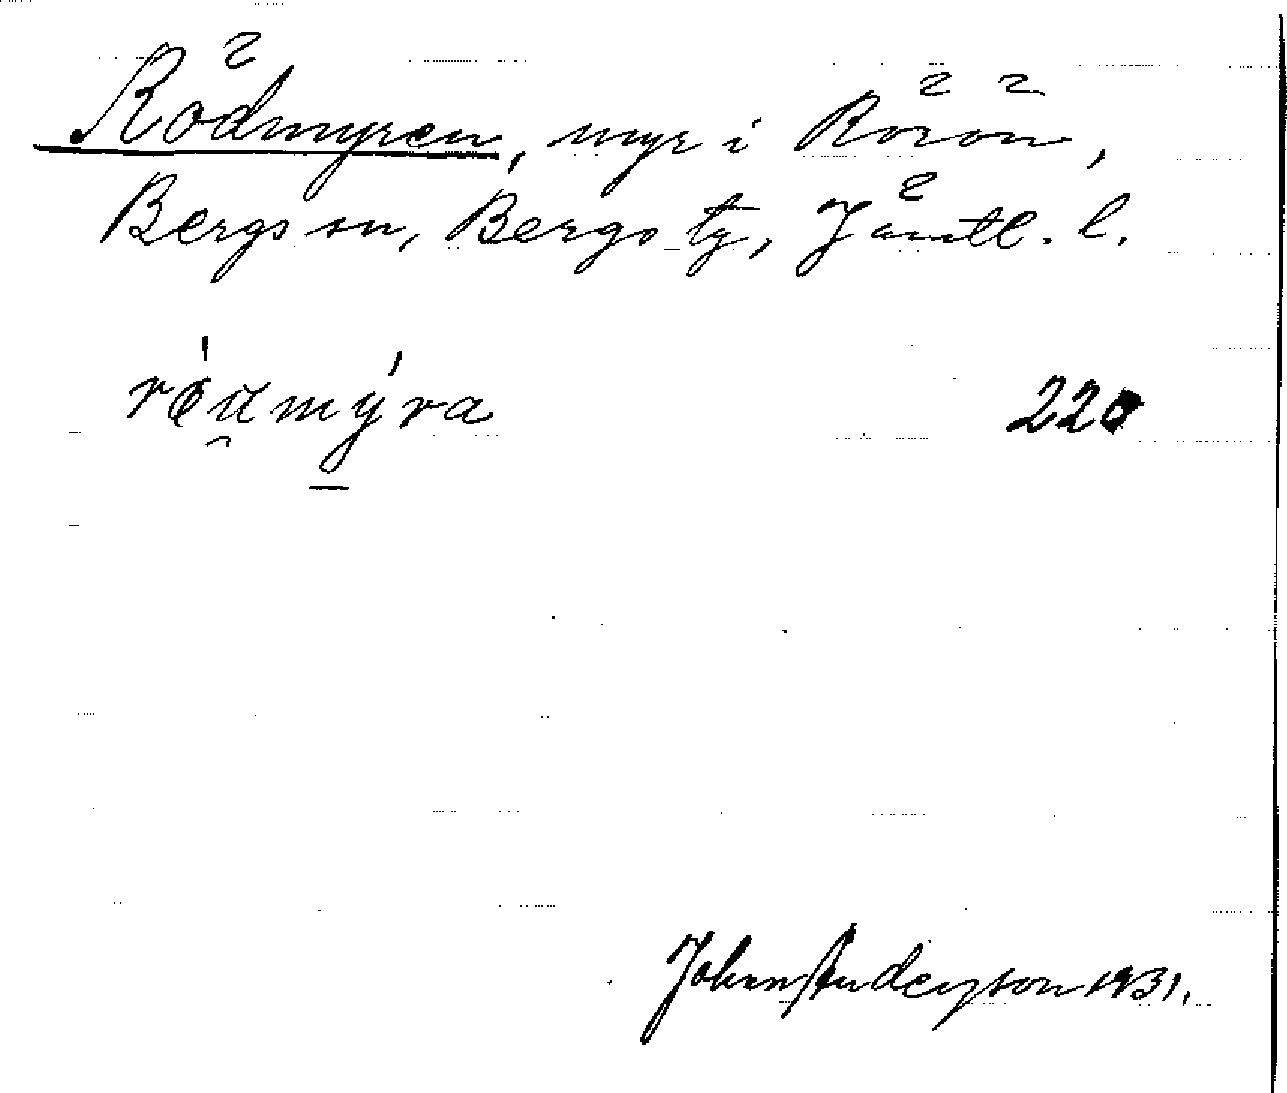 Rödmyren, myr i Rörön,
Bergs sn, Bergs tg, Jämtl. l.
220
Johan Anderson 1931.